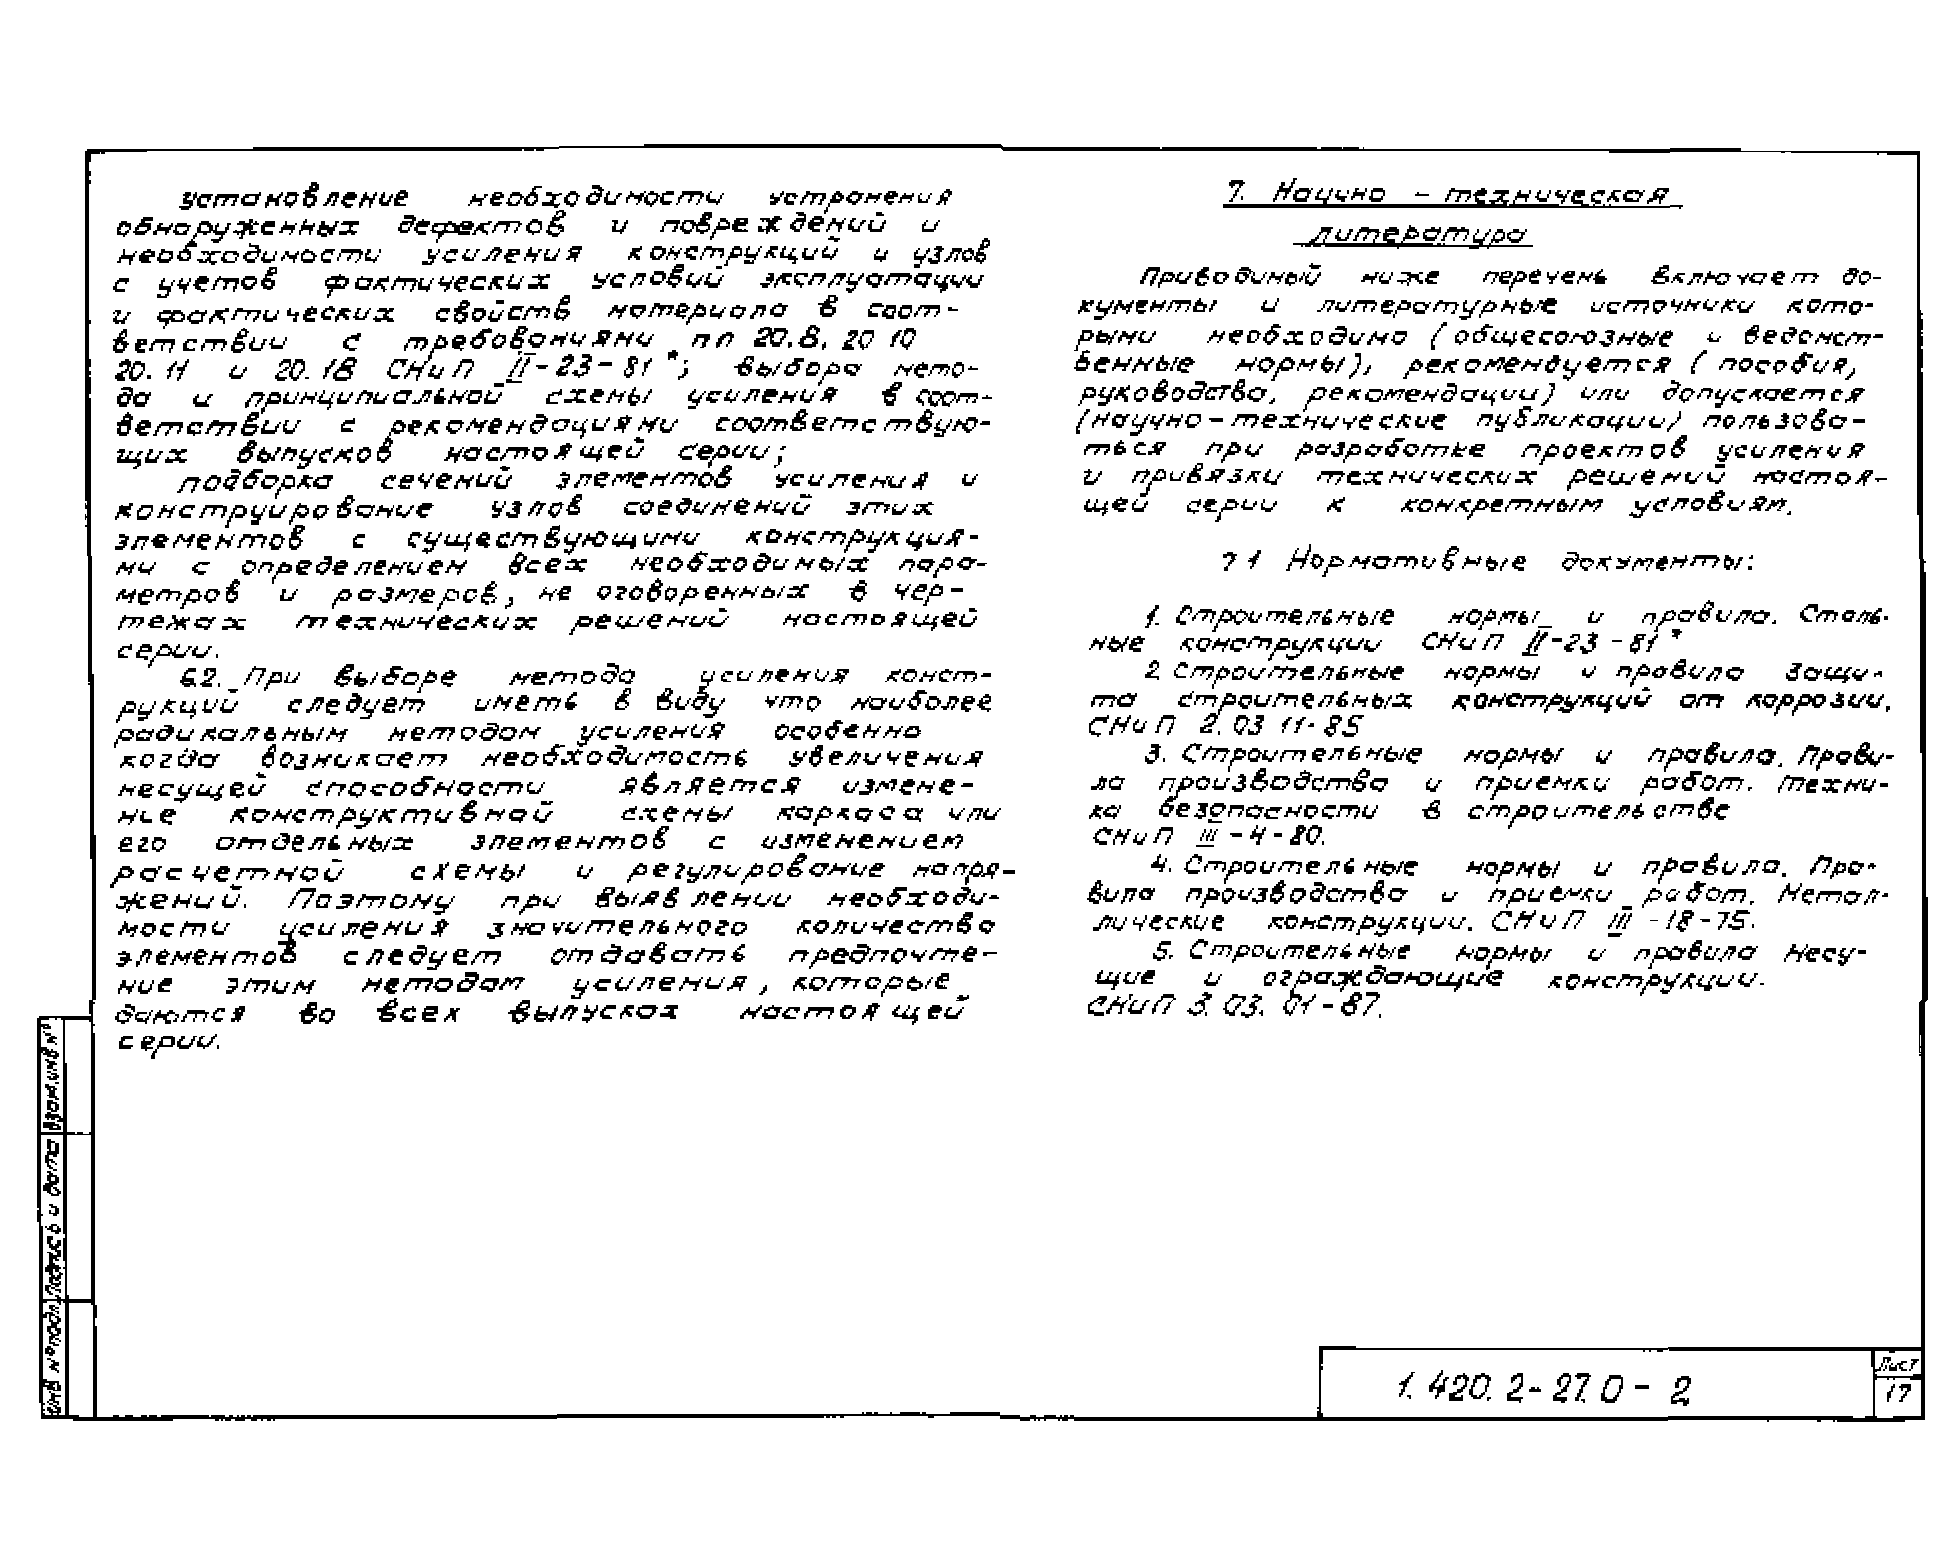 установление необходимости устронения
обноруженных дефектов и повреждений и
необходимости усиления конструкций и узлов
с учетов фактических условий эксплуатации
и фактических свойств материала в соот-
ветствии с требованиями пп 20.8, 20 10
20.11 и 20.18 СНиП II-23-81*; выбора мето-
да и принципиальной схемы усиления в соот-
ветствии с рекомендациями соответствую-
щих выпусков настоящей серии;
подборка сечений элементов усиления и
конструирование узлов соединений этих
элементов с существующими конструкция-
ми с определением всех необходимых пара-
метров и размеров, не оговоренных в чер-
тежах технических решений настоящей
серии.
6.2. При выборе метода усиления конст-
рукций следует иметь в виду что наиболее
радикальным методом усиления особенно
когда возникает необходимость увеличения
несущей способности является измене-
ние конструктивной схемы каркаса или
его отдельных элементов с изменением
расчетной схемы и регулирование напря-
жений. Поэтому при выявлении необходи-
мости усиления значительного количества
элементов следует отдавать предпочте-
ние этим методам усиления, которые
даются во всех выпусках настоящей
серии.
7. Научно - техническая
литература
Приводимый ниже перечень включает до-
кументы и литературные источники кото-
рыми необходимо (общесоюзные и ведомст-
венные нормы), рекомендуется (пособия,
руководства, рекомендации) или допускается
(научно-технические публикации) пользова-
ться при разработке проектов усиления
и привязки технических решений настоя-
щей серии к конкретным условиям.
7 1 Нормативные документы:
1. Строительные нормы и правила. Сталь-
ные конструкции СНиП II-23-81*
2 Строительные нормы и правила Защи-
та строительных конструкций от коррозии.
СНиП 2.03 11-85
3. Строительные нормы и правила. Прави-
ла производства и приемки работ. Техни-
ка безопасности в строительстве
СНиП III-4-80.
4. Строительные нормы и правила. Пра-
вила производства и приемки работ. Метал-
лические конструкции. СНиП III-18-75.
5. Строительные нормы и правила Несу-
щие и ограждающие конструкции.
СНиП 3.03.01-87.
Взам.инв №
Подпись и дата
Инв № подл.
1.420.2-27.0-2
Лист
17